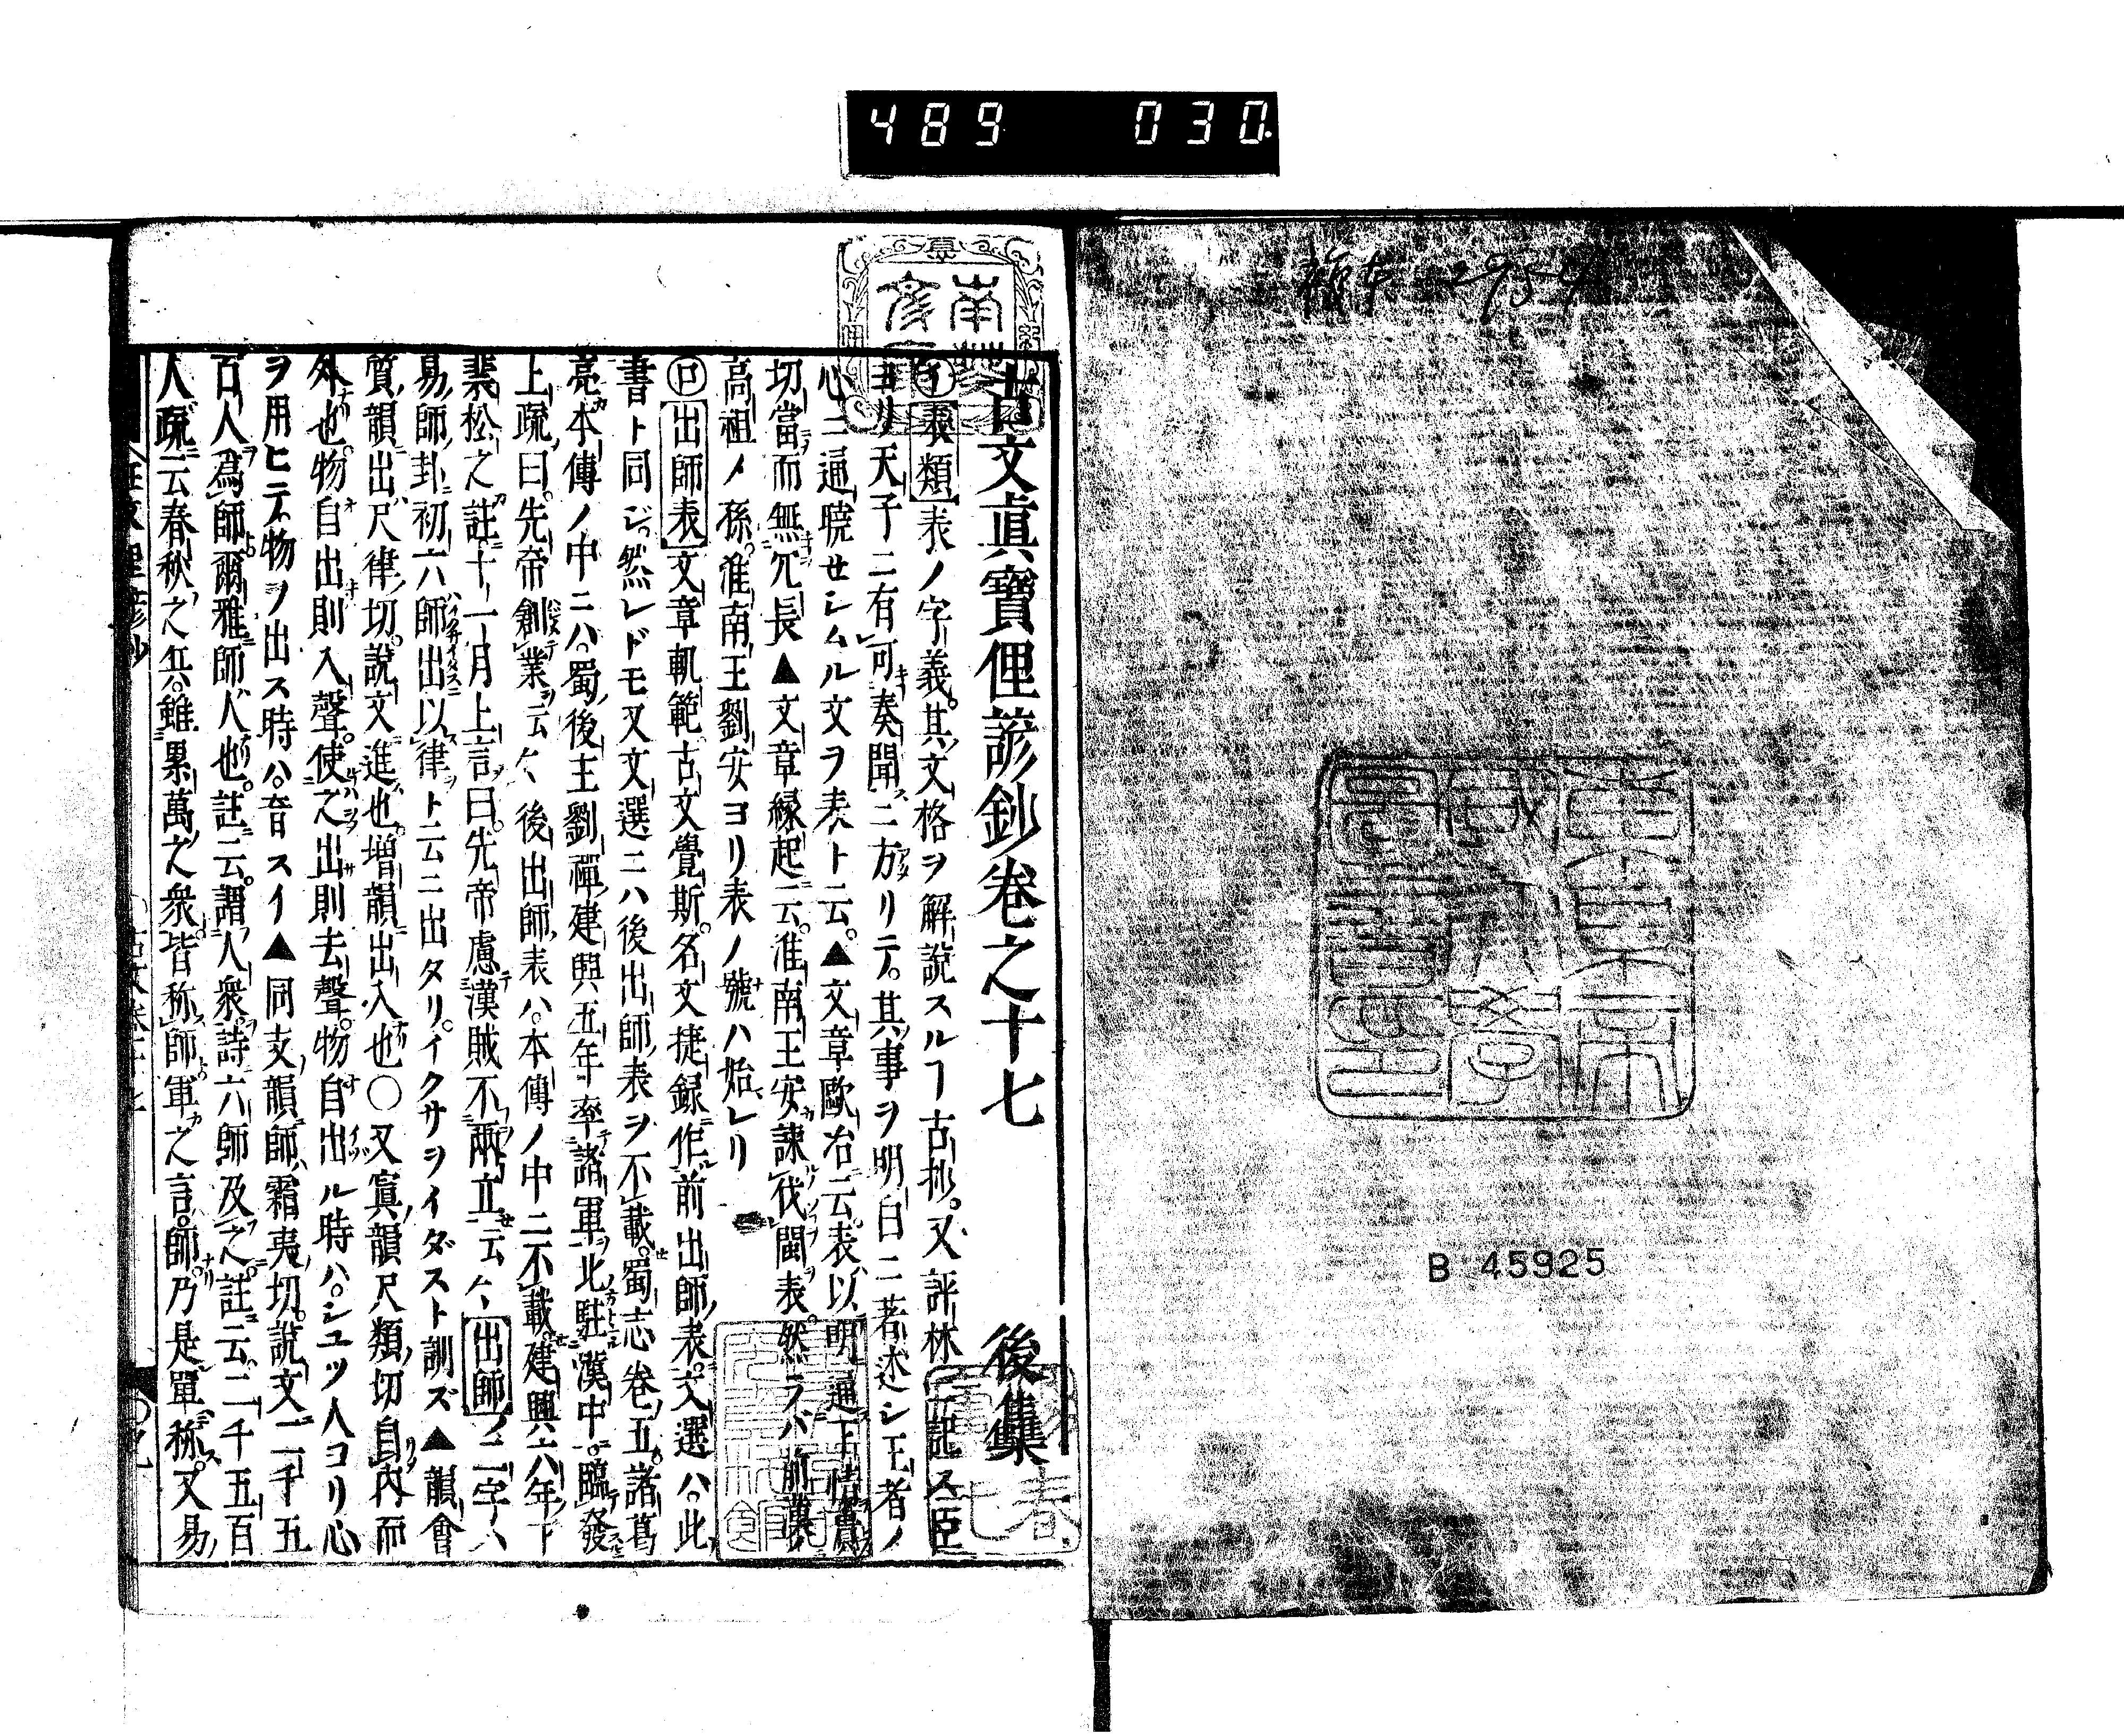 489 030
B 45925
古文眞寶俚諺鈔卷之十七 後集
㋑表類表ノ字義其文格ヲ解説スルヿ古抄又評林ニ記ス臣
ヨリ天子ニ有可奏聞ニ方リテ其事ヲ明白ニ著述シ王者ノ
心ニ通曉セシムル文ヲ表ト云▲文章歐冶云表以明通下情實
切當而無冗長▲文章縁起云淮南王安諫伐閩表然ラバ前漢
高祖ノ孫淮南王劉安ヨリ表ノ號ハ始レリ
㋺出師表文章軌範古文覺斯名文捷録作前出師表文選ハ此
書ト同ジ然レドモ又文選ニハ後出師表ヲ不載蜀志卷五諸葛
亮本傳ノ中ニハ蜀後主劉禪建興五年率諸軍北駐漢中臨發
上疏曰先帝創業云々後出師表ハ本傳ノ中ニ不載建興六年下
裴松之註十一月上言曰先帝慮漢賊不兩立云々出師ノ二字ハ
易師卦初六師出以律ト云ニ出タリイクサヲイダスト訓ズ▲韻會
質韻出尺律切説文進也増韻出入也〇又寘韻尺類切自内而
外也物自出則入聲使之出則去聲物自出ル時ハシユツ人コリ心
ヲ用ヒテ物ヲ出ス時ハ音スイ▲同支韻師霜夷切説文二千五
百人爲師爾雅師人也註云謂人衆詩六師及之註云二千五百
人疏云春秋之兵雖累萬之衆皆称師軍之言師乃是單称又易